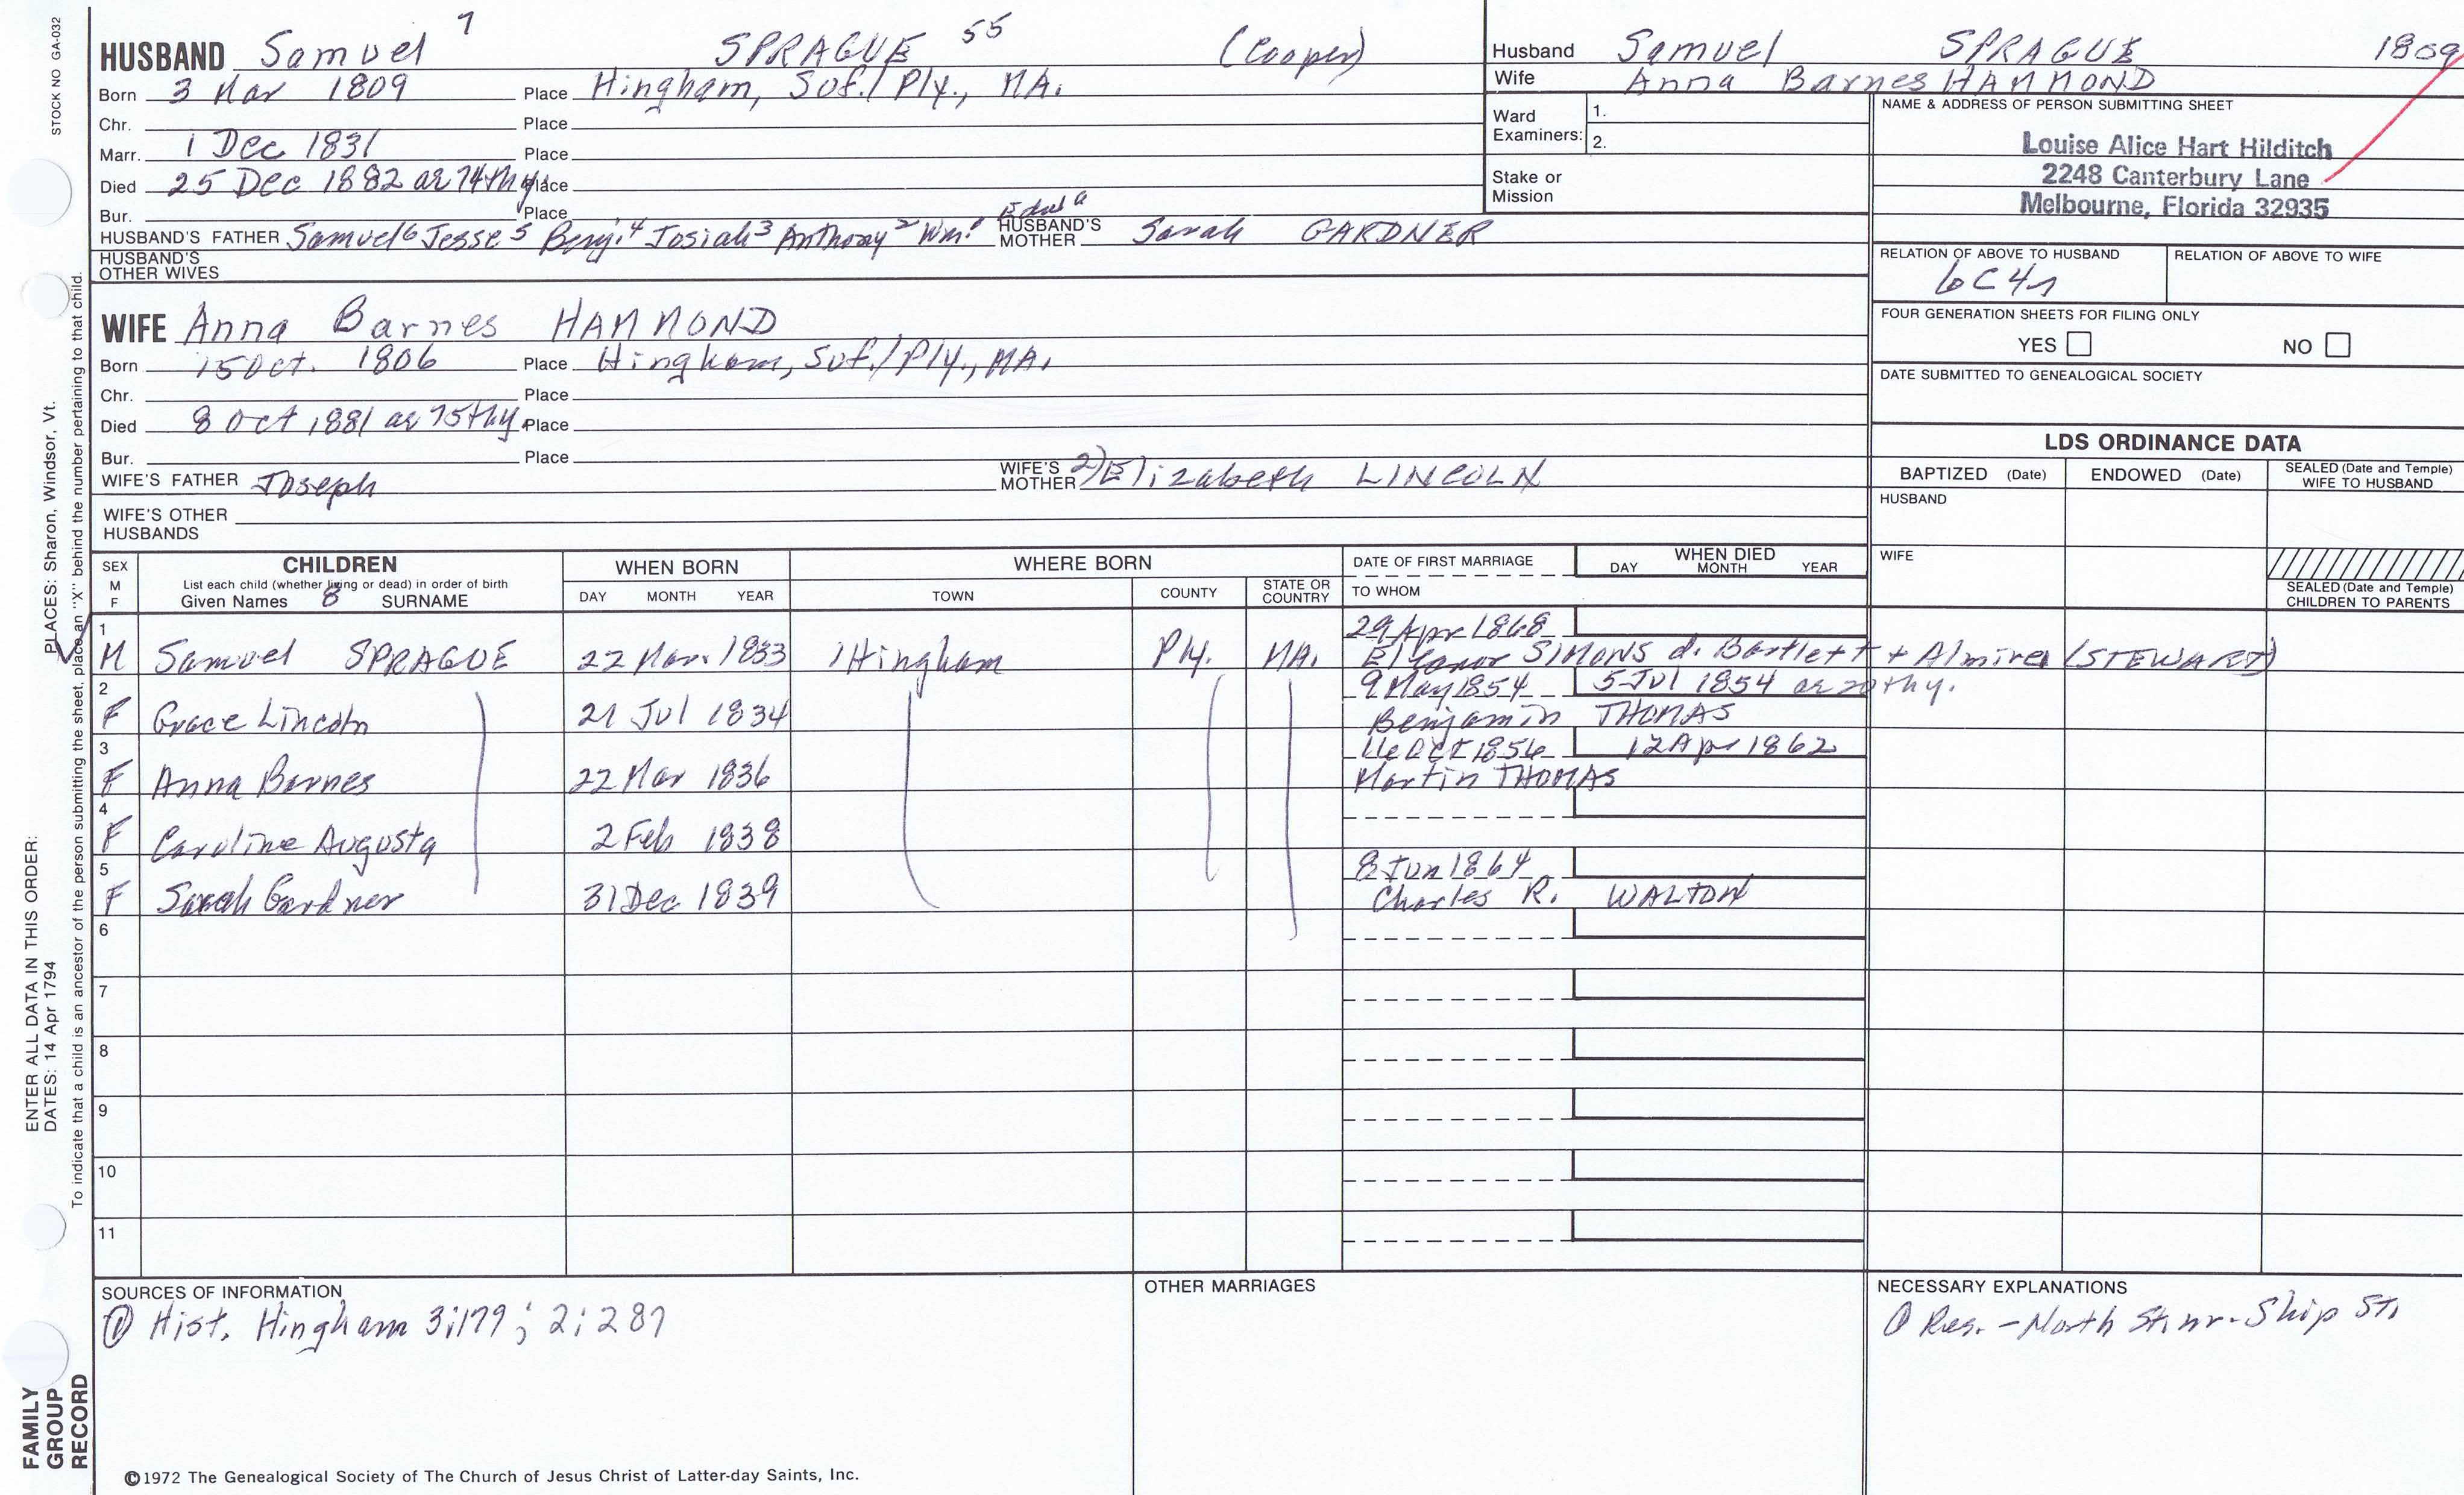 STOCK NO GA-032
HUSBAND Samuel 7 SPRAGUE 55 (Cooper)
Born 3 Mar 1809 Place Hingham, Suf./Ply., MA.
Chr. Place
Marr. 1 Dec 1831 Place
Died 25 Dec 1882 ae 74thy Place
Bur. Place
HUSBAND'S FATHER Samuel6 Jesse5 Benj.4 Josiah3 Anthony2 Wm1 HUSBAND'S MOTHER Sarah GARDNER
HUSBAND'S OTHER WIVES
WIFE Anna Barnes HAMMOND
Born 15 Oct. 1806 Place Hingham, Suf./Ply., MA.
Chr. Place
Died 8 Oct 1881 ae 75thy. Place
Bur. Place
WIFE'S FATHER Joseph WIFE'S MOTHER 2) Elizabeth LINCOLN
WIFE'S OTHER HUSBANDS
Husband Samuel SPRAGUE 1809
Wife Anna Barnes HAMMOND
Ward Examiners: 1. 2.
Stake or Mission
NAME & ADDRESS OF PERSON SUBMITTING SHEET
Louise Alice Hart Hilditch
2248 Canterbury Lane
Melbourne, Florida 32935
RELATION OF ABOVE TO HUSBAND RELATION OF ABOVE TO WIFE
6C4r
FOUR GENERATION SHEETS FOR FILING ONLY
YES NO
DATE SUBMITTED TO GENEALOGICAL SOCIETY
LDS ORDINANCE DATA
BAPTIZED (Date) ENDOWED (Date) SEALED (Date and Temple) WIFE TO HUSBAND
HUSBAND
WIFE
SEALED (Date and Temple) CHILDREN TO PARENTS
SEX M F CHILDREN List each child (whether living or dead) in order of birth Given Names 8 SURNAME
WHEN BORN DAY MONTH YEAR
WHERE BORN TOWN COUNTY STATE OR COUNTRY
DATE OF FIRST MARRIAGE TO WHOM
WHEN DIED DAY MONTH YEAR
1 29 Apr 1868
M Samuel SPRAGUE 22 Mar. 1833 Hingham Ply. MA. Eleanor SIMONS d. Bartlett + Almira (STEWART)
2 9 May 1854 5 Jul 1854 ae 20thy.
F Grace Lincoln 21 Jul 1834 Benjamin THOMAS
3 Oct 1856 12 Apr 1862
F Anna Barnes 22 Mar 1836 Martin THOMAS
4
F Caroline Augusta 2 Feb 1838
5 8 Jun 1864
F Sarah Gardner 31 Dec 1839 Charles R. WALTON
6
7
8
9
10
11
SOURCES OF INFORMATION
① Hist. Hingham 3:179; 2:287
OTHER MARRIAGES
NECESSARY EXPLANATIONS
① Res. - North St. nr. Ship St.
©1972 The Genealogical Society of The Church of Jesus Christ of Latter-day Saints, Inc.
FAMILY GROUP RECORD
ENTER ALL DATA IN THIS ORDER:
DATES: 14 Apr 1794
PLACES: Sharon, Windsor, Vt.
To indicate that a child is an ancestor of the person submitting the sheet, place an "X" behind the number pertaining to that child.